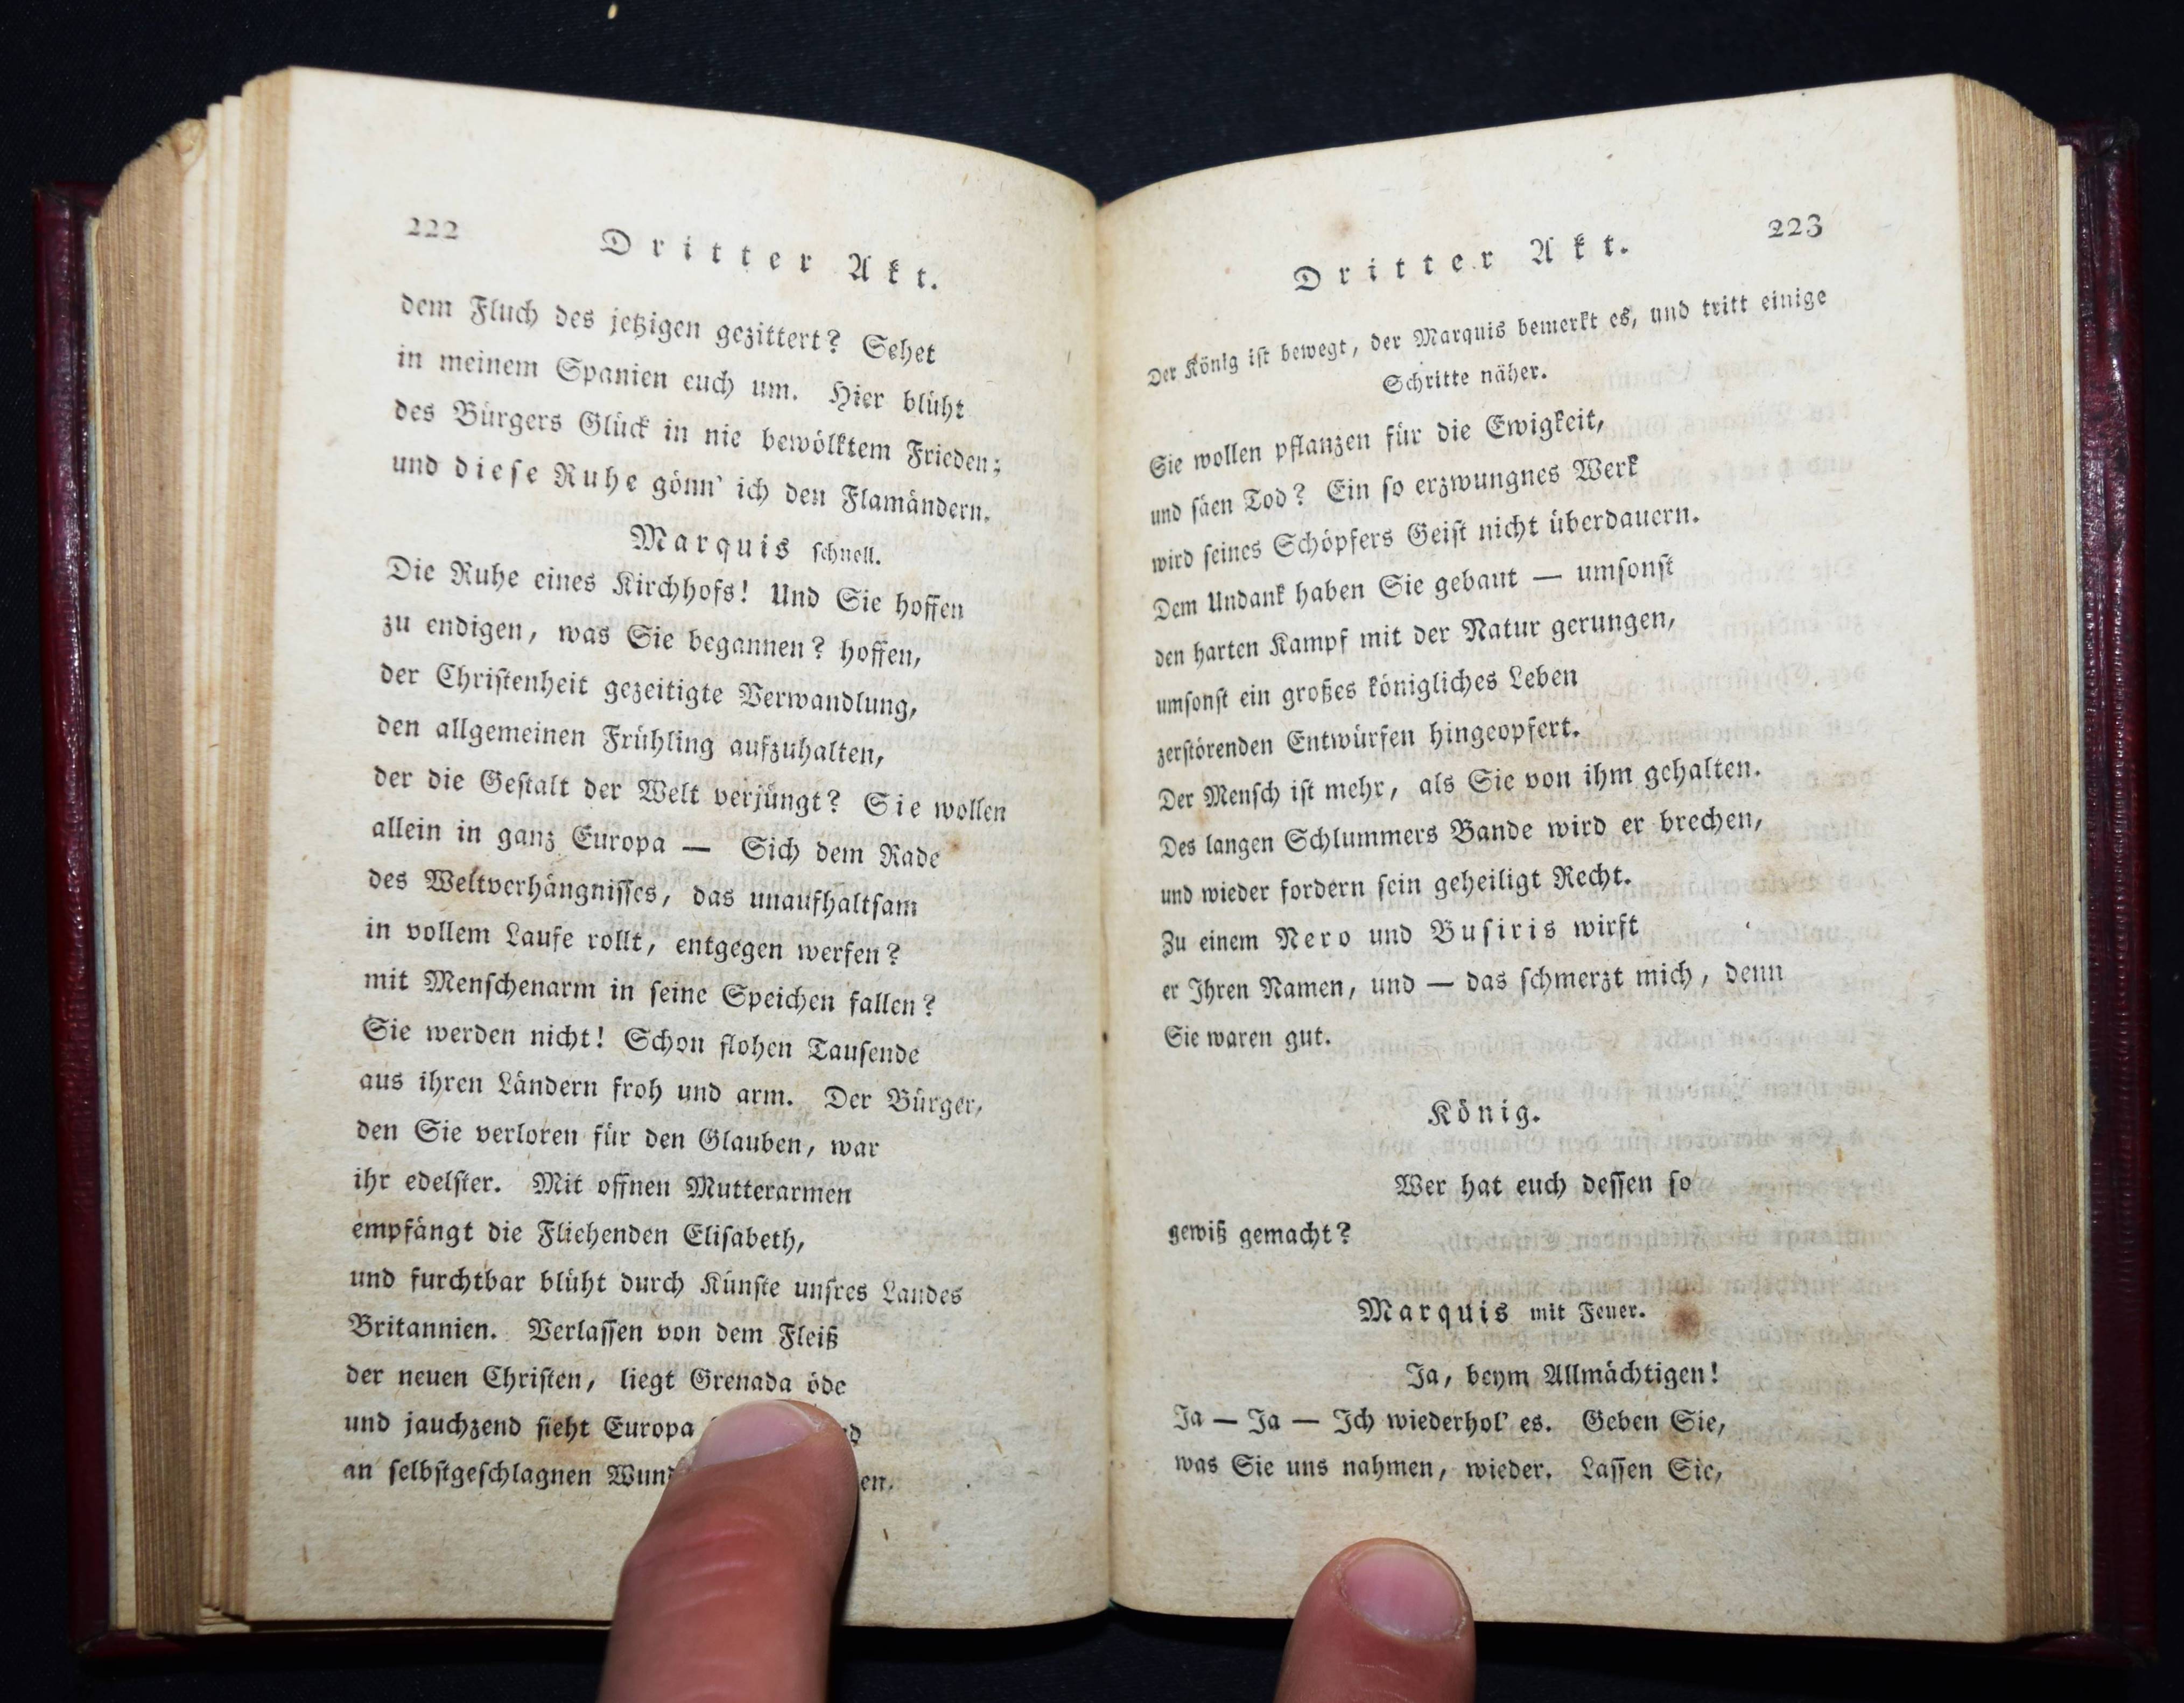 222
Dritter Akt.
dem Fluch des jetzigen gezittert? Sehet
in meinem Spanien euch um. Hier blüht
des Bürgers Glück in nie bewölktem Frieden;
und dieſe Ruhe gönn' ich den Flamändern.
Marquis ſchnell.
Die Ruhe eines Kirchhofs! Und Sie hoffen
zu endigen, was Sie begannen? hoffen,
der Chriſtenheit gezeitigte Verwandlung,
den allgemeinen Frühling aufzuhalten,
der die Geſtalt der Welt verjüngt? Sie wollen
allein in ganz Europa — Sich dem Rade
des Weltverhängniſſes, das unaufhaltſam
in vollem Laufe rollt, entgegen werfen?
mit Menſchenarm in ſeine Speichen fallen?
Sie werden nicht! Schon flohen Tauſende
aus ihren Ländern froh und arm. Der Bürger,
den Sie verloren für den Glauben, war
ihr edelſter. Mit offnen Mutterarmen
empfängt die Fliehenden Eliſabeth,
und furchtbar blüht durch Künſte unſres Landes
Britannien. Verlaſſen von dem Fleiß
der neuen Chriſten, liegt Grenada öde
und jauchzend ſieht Europa
an ſelbſtgeſchlagnen
223
Dritter Akt.
Der König iſt bewegt, der Marquis bemerkt es, und tritt einige
Schritte näher.
Sie wollen pflanzen für die Ewigkeit,
und ſäen Tod? Ein ſo erzwungnes Werk
wird ſeines Schöpfers Geiſt nicht überdauern.
Dem Undank haben Sie gebaut — umſonſt
den harten Kampf mit der Natur gerungen,
umſonſt ein großes königliches Leben
zerſtörenden Entwürfen hingeopfert.
Der Menſch iſt mehr, als Sie von ihm gehalten.
Des langen Schlummers Bande wird er brechen,
und wieder fordern ſein geheiligt Recht.
Zu einem Nero und Buſiris wirft
er Ihren Namen, und — das ſchmerzt mich, denn
Sie waren gut.
König.
Wer hat euch deſſen ſo
gewiß gemacht?
Marquis mit Feuer.
Ja, beym Allmächtigen!
Ja — Ja — Ich wiederhol' es. Geben Sie,
was Sie uns nahmen, wieder. Laſſen Sie,